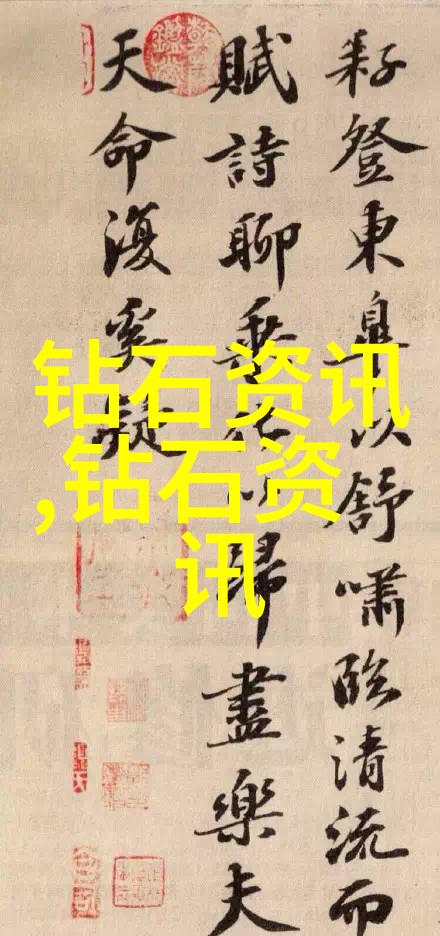 耔登東皋以舒嘯臨清流而
賦詩聊乘化以歸盡樂夫
天命復奚疑
钻石资讯
,钻石资
讯